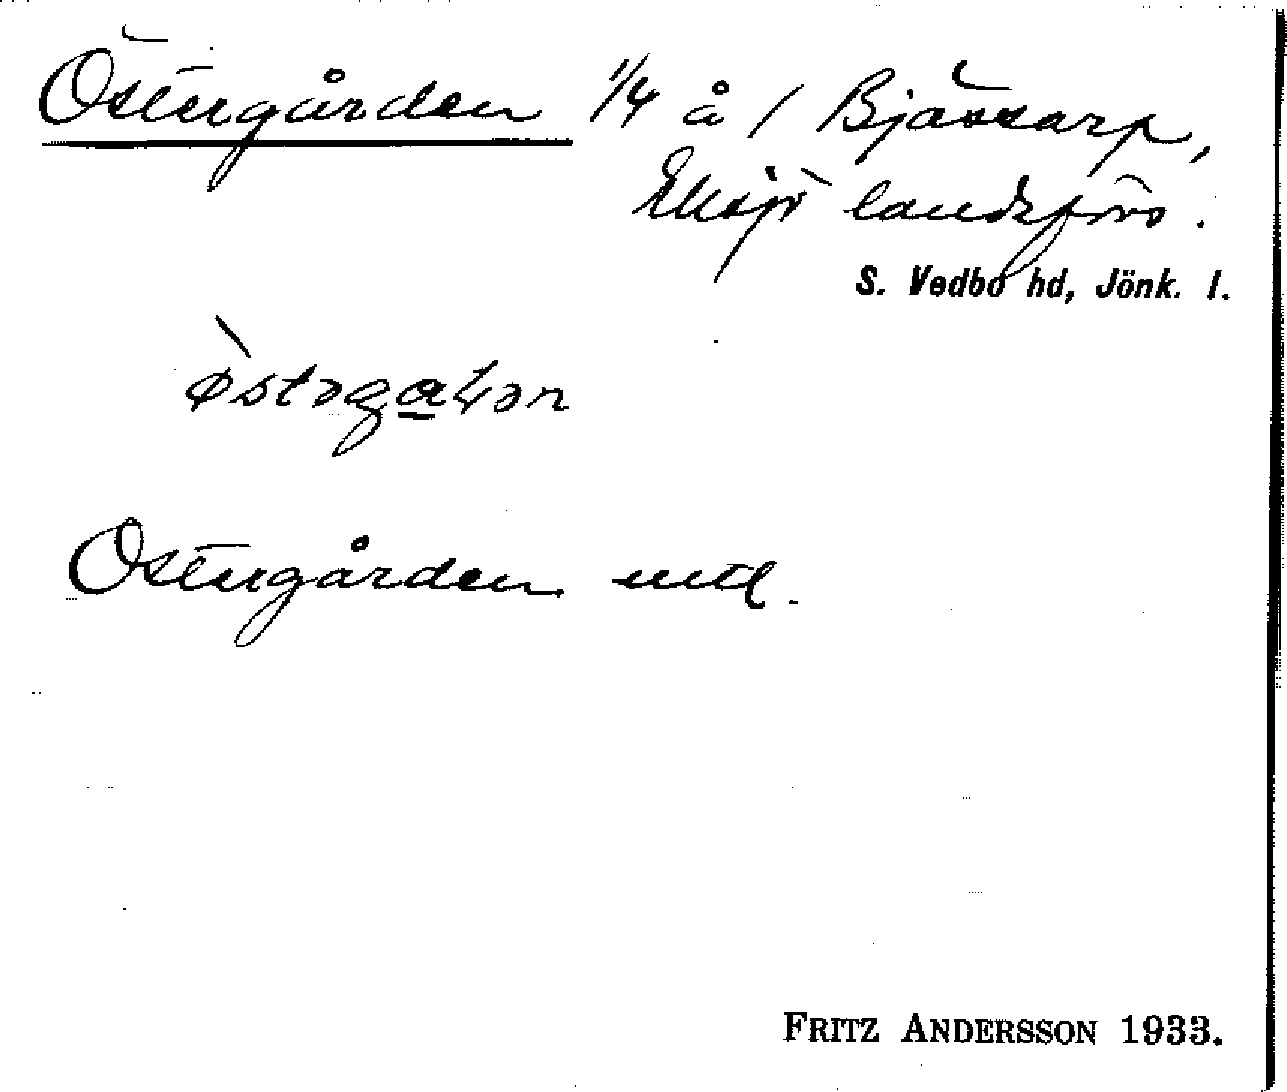 Östergården 1/4 å 1 Bjässarp,
Eksjö landsförs.
S. Vedbo hd, Jönk. l.
Östergården mtl.
FRITZ ANDERSSON 1933.